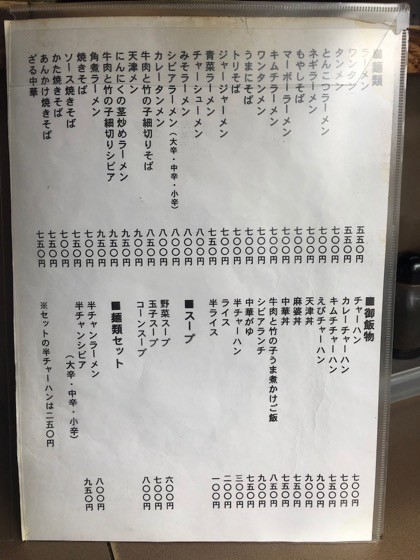 ■麺類
ラーメン 五五〇円
ワンタン 五五〇円
タンメン
とんこつラーメン 七〇〇円
ネギラーメン 七〇〇円
もやしそば 七〇〇円
マーボーラーメン 七〇〇円
キムチラーメン 七〇〇円
ワンタンメン 七〇〇円
うまにそば 七〇〇円
トリそば 七〇〇円
ジャージャーメン 七〇〇円
青菜ラーメン 七五〇円
チャーシューメン 八〇〇円
みそラーメン 八〇〇円
シビアラーメン（大辛・中辛・小辛） 八〇〇円
カレータンメン 八〇〇円
牛肉と竹の子細切りそば 八五〇円
天津メン 九〇〇円
にんにくの茎炒めラーメン 九五〇円
牛肉と竹の子細切りシビア 九五〇円
角煮ラーメン 九五〇円
焼きそば 七〇〇円
ソース焼きそば 七五〇円
かた焼きそば 七〇〇円
あんかけ焼きそば 七五〇円
ざる中華 七五〇円
■御飯物
チャーハン 七〇〇円
カレーチャーハン 七〇〇円
キムチチャーハン 七五〇円
えびチャーハン 九〇〇円
天津丼 九〇〇円
麻婆丼 七五〇円
中華丼 七五〇円
牛肉と竹の子うま煮かけご飯 八五〇円
シビアランチ 九〇〇円
中華がゆ 七五〇円
半チャーハン 三〇〇円
ライス 二〇〇円
半ライス 一〇〇円
■スープ
野菜スープ 六〇〇円
玉子スープ 七〇〇円
コーンスープ 八〇〇円
■麺類セット
半チャンラーメン 八〇〇円
半チャンシビア 九五〇円
（大辛・中辛・小辛）
※セットの半チャーハンは二五〇円